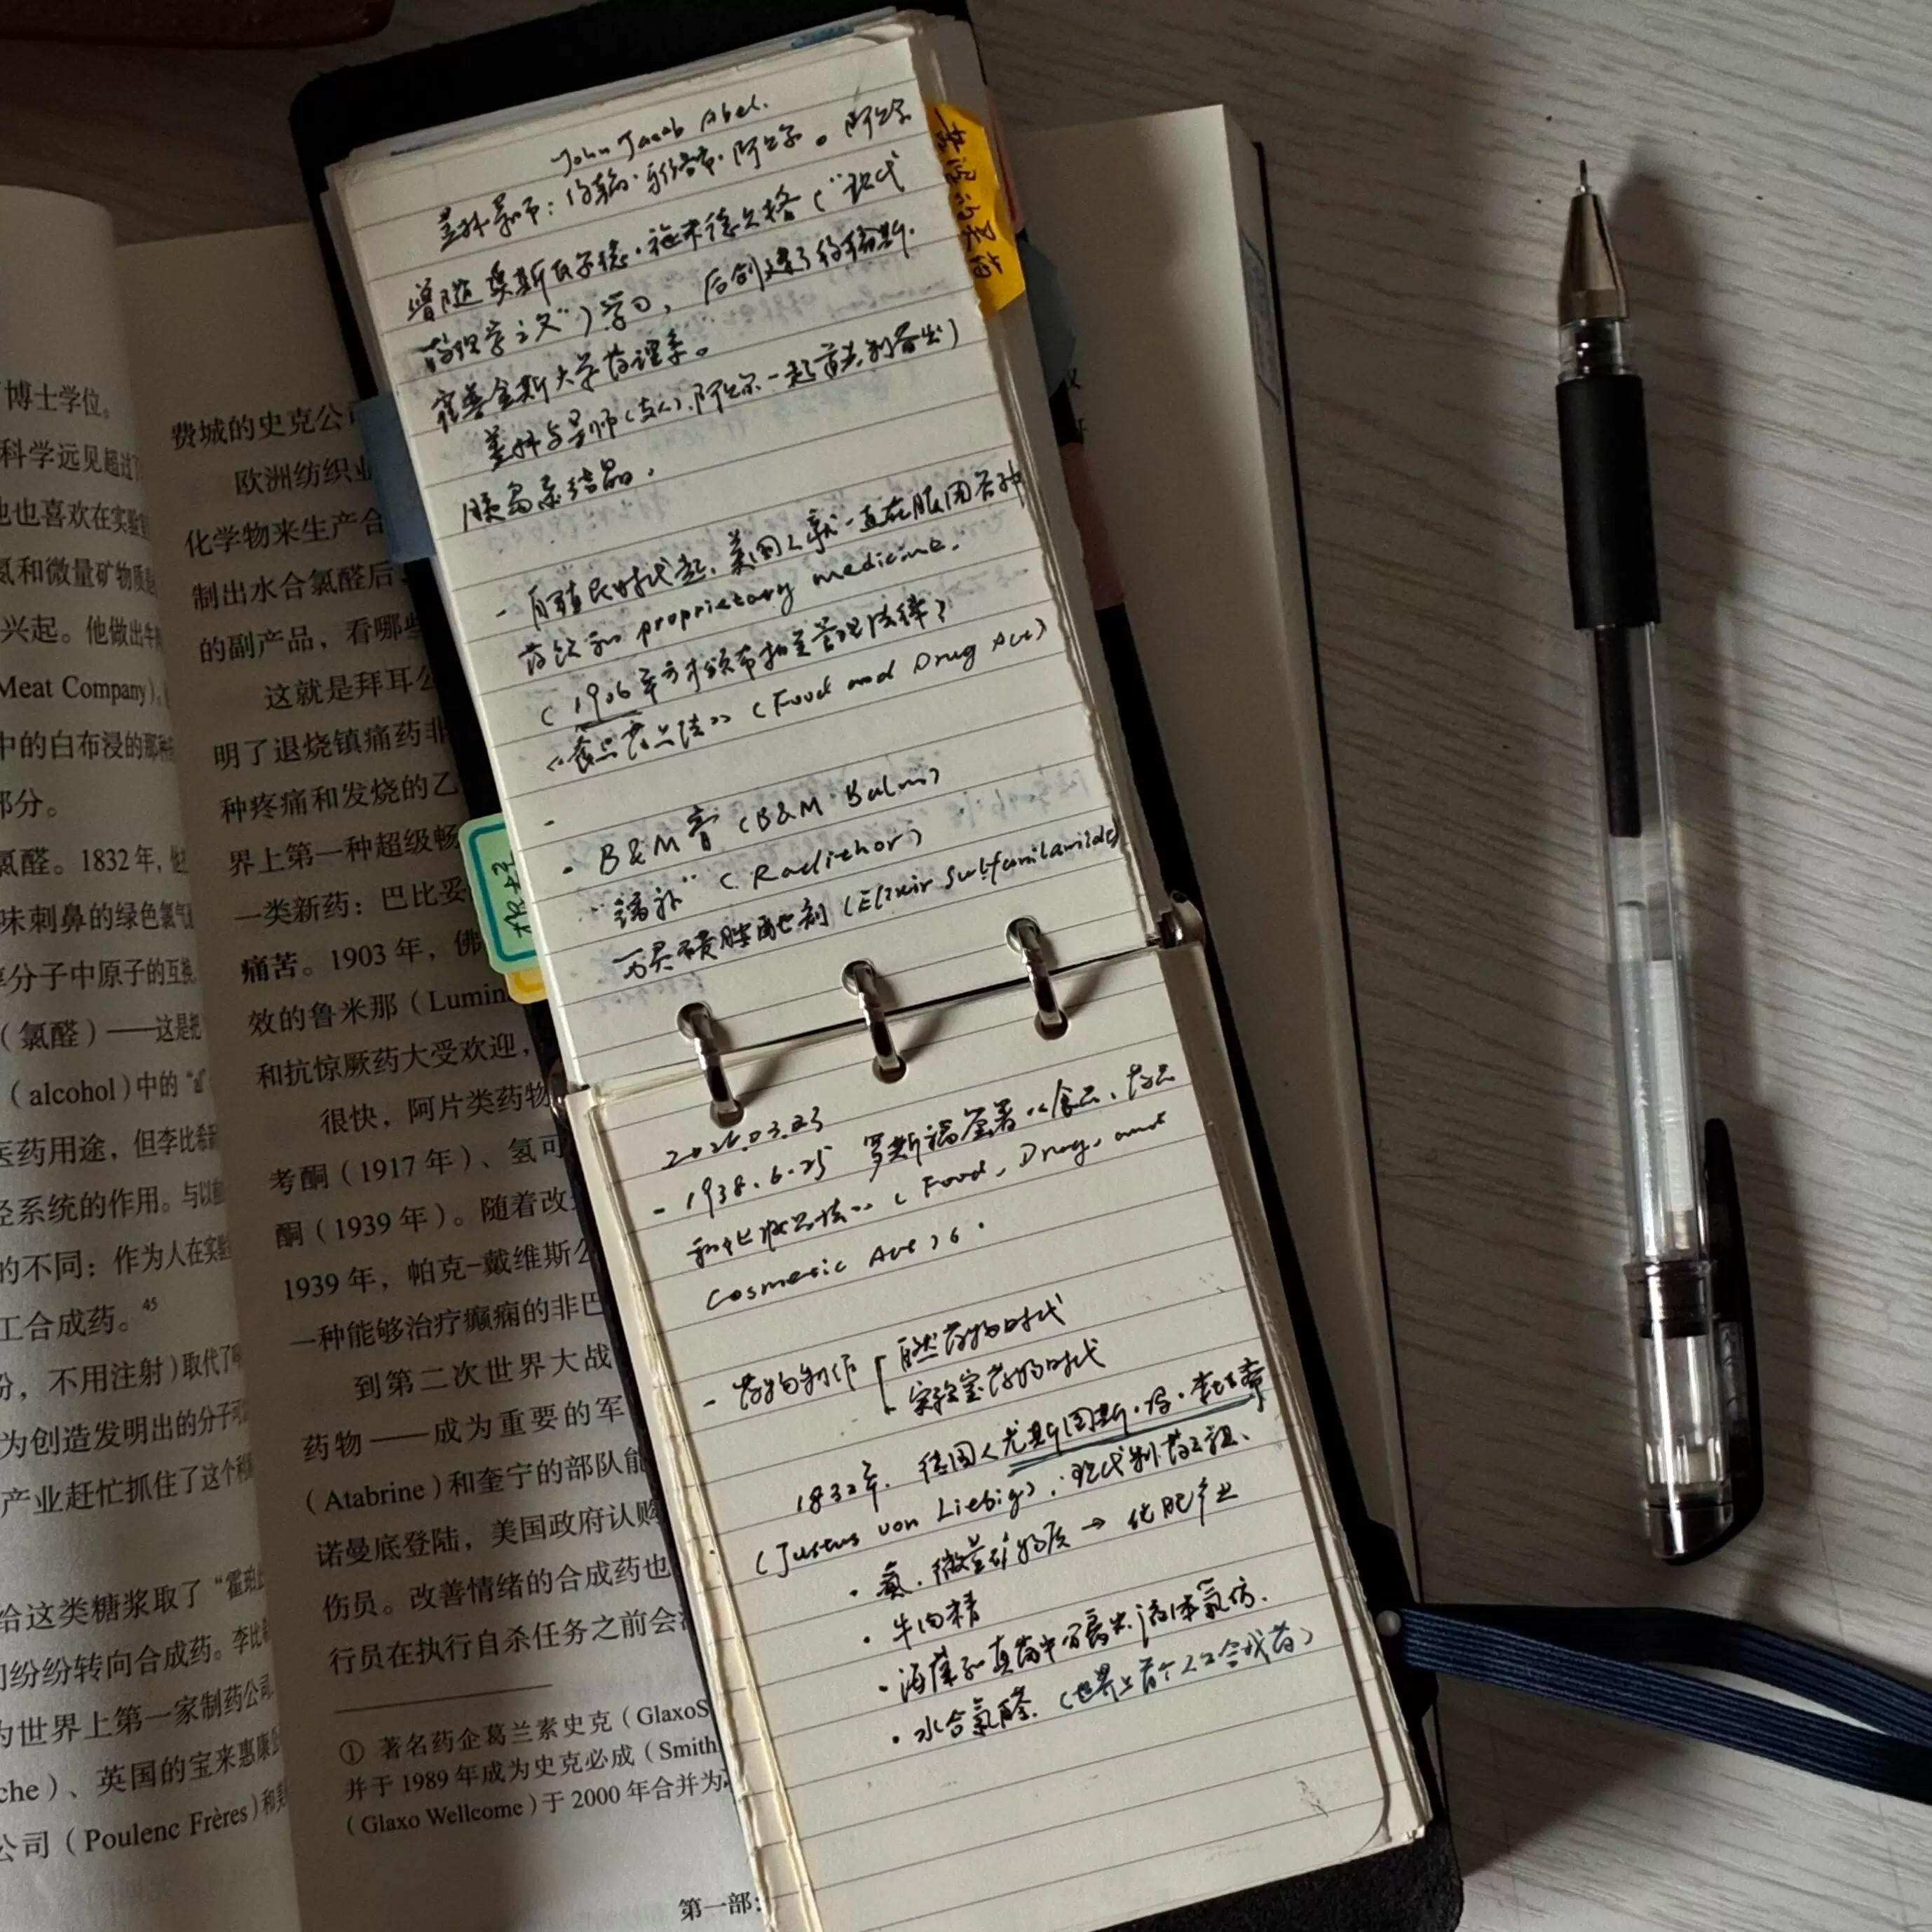 John Jacob Abel.
盖林导师：约翰·雅各布·阿贝尔。阿贝尔
曾随奥斯瓦尔德·施米德贝格（“现代
药理学之父”）学习，后创建了约翰斯·
霍普金斯大学药理系。
盖林与导师（友人）阿贝尔一起首先制备出
胰岛素结晶。
- 自殖民时代起，美国人就一直在服用各种
药饮和 proprietary medicine.
（1906年方才颁布相关管理法律）
《食品药品法》（Food and Drug Act）
-
· B&M膏（B&M Balm）
“镭补”（Radithor）
万灵磺胺酏剂（Elixir Sulfanilamide）
2026.03.23
- 1938.6.25 罗斯福签署《食品、药品
和化妆品法》（Food, Drug, and
Cosmetic Act）。
- 药物制作 自然药物时代
实验室药物时代
1832年，德国人尤斯图斯·冯·李比希
（Justus von Liebig）：现代制药之祖、
· 氮、微量矿物质→化肥产业
· 牛肉精
· 海藻和真菌中分离出液体氯仿.
· 水合氯醛.（世界上首个人工合成药）
博士学位。
科学远见超过了
他也喜欢在实验室
氮和微量矿物质
兴起。他做出牛
Meat Company）
中的白布浸的那种
部分。
氯醛。1832年，他
味刺鼻的绿色氯气
分子中原子的互换
（氯醛）——这是把
（alcohol）中的“al”
医药用途，但李比希
经系统的作用。与以
的不同：作为人在实验
工合成药。45
份，不用注射）取代了
为创造发明出的分子可
产业赶忙抓住了这个
给这类糖浆取了“霍
司纷纷转向合成药。李比
为世界上第一家制药公司
che）、英国的宝来惠康
公司（Poulenc Frères）和
费城的史克公司
欧洲纺织业
化学物来生产合
制出水合氯醛后
的副产品，看哪些
这就是拜耳公
明了退烧镇痛药非
种疼痛和发烧的乙
界上第一种超级畅
一类新药：巴比妥
痛苦。1903年，佛
效的鲁米那（Lumin
和抗惊厥药大受欢迎，
很快，阿片类药物
考酮（1917年）、氢可
酮（1939年）。随着改
1939年，帕克-戴维斯公
一种能够治疗癫痫的非巴
到第二次世界大战
药物——成为重要的军
（Atabrine）和奎宁的部队能
诺曼底登陆，美国政府认购
伤员。改善情绪的合成药也
行员在执行自杀任务之前会
① 著名药企葛兰素史克（GlaxoS
并于1989年成为史克必成（Smith
（Glaxo Wellcome）于2000年合并为
第一部：